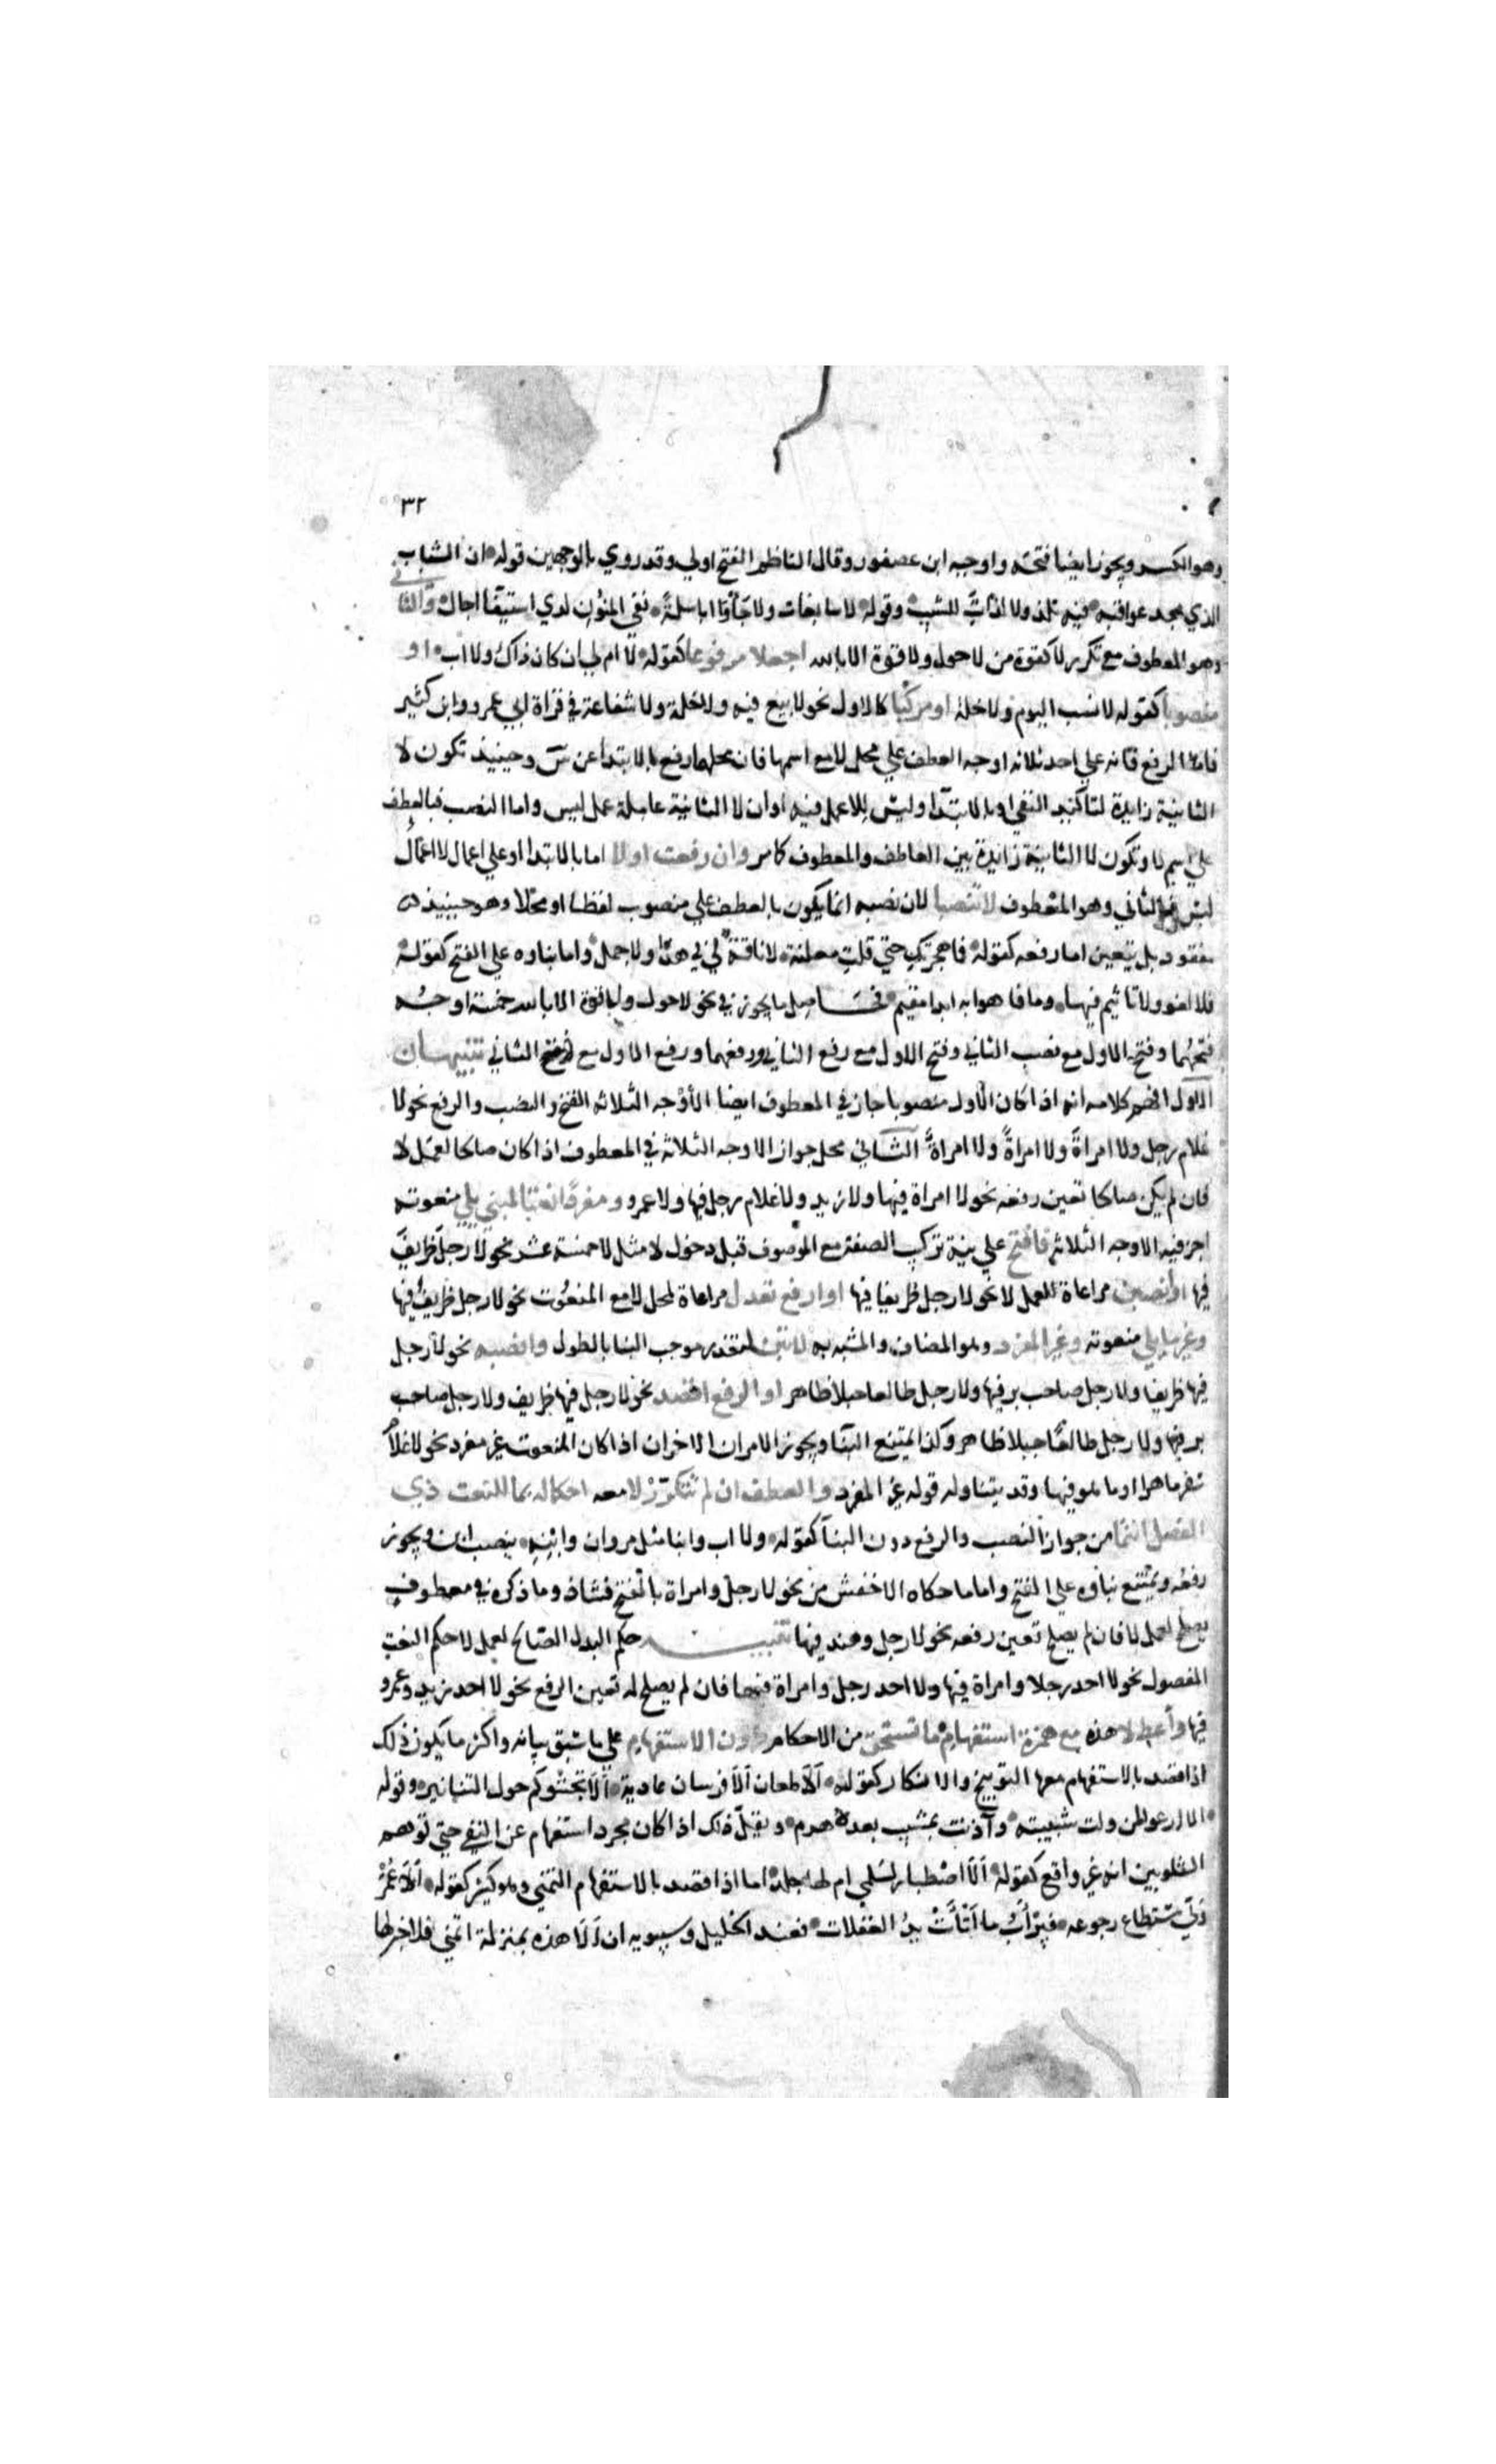 ٣٢
وهو الكسر ويجوز ايضا فتحه واوجبه ابن عصفور وقال الناظم الفتح اولي وقد روي بالوجهين قوله ان الشباب
الذي مجد عواقبه فيه نلذ ولا لذات للشيب وقوله لا سابغات ولا جأوا باسلة تقي المنون لدي استيفا اجال والثاني
وهو المعطوف مع تكرير لا كقوة من لا حول ولا قوة الا بالله اجعلا مرفوعا كقوله لا ام لي ان كان ذاك ولا اب او
منصوبا كقوله لا نسب اليوم ولا خلة او مركبا كالاول نحو لا بيع فيه ولا خلة ولا شفاعة في قراة ابي عمرو وابن كثير
فاما الرفع فانه علي احد ثلاثه اوجه العطف علي محل لا مع اسمها فان محلهما رفع بالابتدا عن س وحينيذ تكون لا
الثانية زايدة لتاكيد النفي او بالابتدا وليس للا عمل فيه او ان لا الثانية عاملة عمل ليس واما النصب فبالعطف
علي اسم لا وتكون لا الثانية زايدة بين العاطف والمعطوف كامر وان رفعت اولا اما بالابتدا او علي اعمال لا اعمال
ليس فالثاني وهو المعطوف لا تنصبا لان نصبه انما يكون بالعطف علي منصوب لفظا او محلا وهو حينيذ
مفقود بل يتعين اما رفعه كقوله فما هجرتك حتي قلت معلنة لا ناقة لي في هذا ولا جمل واما بناوه علي الفتح كقوله
فلا لغو ولا تاثيم فيها وما فاهوا به ابدا مقيم فحاصل ما يجوز في نحو لا حول ولا قوة الا بالله خمسة اوجه
فتحهما وفتح الاول مع نصب الثاني وفتح الاول مع رفع الثاني ورفعهما ورفع الاول مع فتح الثاني تنبيهان
الاول افهم كلامه انه اذا كان الاول منصوبا جاز في المعطوف ايضا الأوجه الثلاثه الفتح والنصب والرفع نحو لا
غلام رجل ولا امراة ولا امراة ولا امراة الثاني محل جواز الاوجه الثلاثة في المعطوف اذا كان صالحا لعمل لا
فان لم يكن صالحا تعين رفعه نحو لا امراة فيها ولا زيد ولا غلام رجل فيها ولا عمرو ومفردا نعتا لمبني يلي منعوته
اجز فيه الاوجه الثلاثه فافتح علي نية تركيب الصفة مع الموصوف قبل دخول لا مثل لا خمسة عشر نحو لا رجل ظريف
فيها او انصبن مراعاة لعمل لا نحو لا رجل ظريفا فيها او ارفع تعدل مراعاة لمحل لا مع المنعوت نحو لا رجل ظريف فيها
وغير ما يلي منعوته وغير المفرد وهو المضاف والمشبه به لا تبن لتعذر موجب البنا بالطول وانصبه نحو لا رجل
فيها ظريفا ولا رجل صاحب بر فيها ولا رجل طالعا جبلا ظاهر او الرفع اقصد نحو لا رجل فيها ظريف ولا رجل صاحب
بر فيها ولا رجل طالع جبلا ظاهر وكذا يمتنع البنا ويجوز الامران الاخران اذا كان المنعوت غير مفرد نحو لا غلام
سفر ماهرا او ماهر فيها وقد يتناوله قوله غير المفرد والعطف ان لم تتكرر لا معه احكاله بما للنعت ذي
الفصل انتما من جواز النصب والرفع دون البنا كقوله ولا اب وابنا مثل مروان وابنه بنصب ابن ويجوز
رفعه ويمتنع بناوه علي الفتح واما ما حكاه الاخفش من نحو لا رجل وامراة بالفتح فشاذ وما ذكره في معطوف
يصلح لعمل لا فان لم يصلح تعين رفعه نحو لا رجل وهند فيها تنبيه حكم البدل الصالح لعمل لا حكم النعت
المفصول نحو لا احد رجلا وامراة فيها ولا احد رجل وامراة فيها فان لم يصلح له تعين الرفع نحو لا احد زيد وعمرو
فيها وأعط لا هذه مع همزة استفهام ما تستحق من الاحكام دون الاستفهام علي ما سبق بيانه واكثر ما يكون ذلك
اذا قصد بالاستفهام معها التوبيخ والانكار كقوله ألا طعان ألا فرسان عادية ألا تجشوكم حول التنانير وقوله
الا ارعوا لمن ولت شبيبته وآذنت بمشيب بعده هرم ويقل ذلك اذا كان مجرد استفهام عن النفي حتي توهم
الشلوبين انه غير واقع كقوله ألا اصطبار لسلمي ام لها جلد اما اذا قصد بالاستفهام التمني وهو كثير كقوله ألا عمر
ولي مستطاع رجوعه فيرأب ما أثأت يد الغفلات فعند الخليل وسيبويه ان ألا هذه بمنزلة اتمني فلا خبر لها